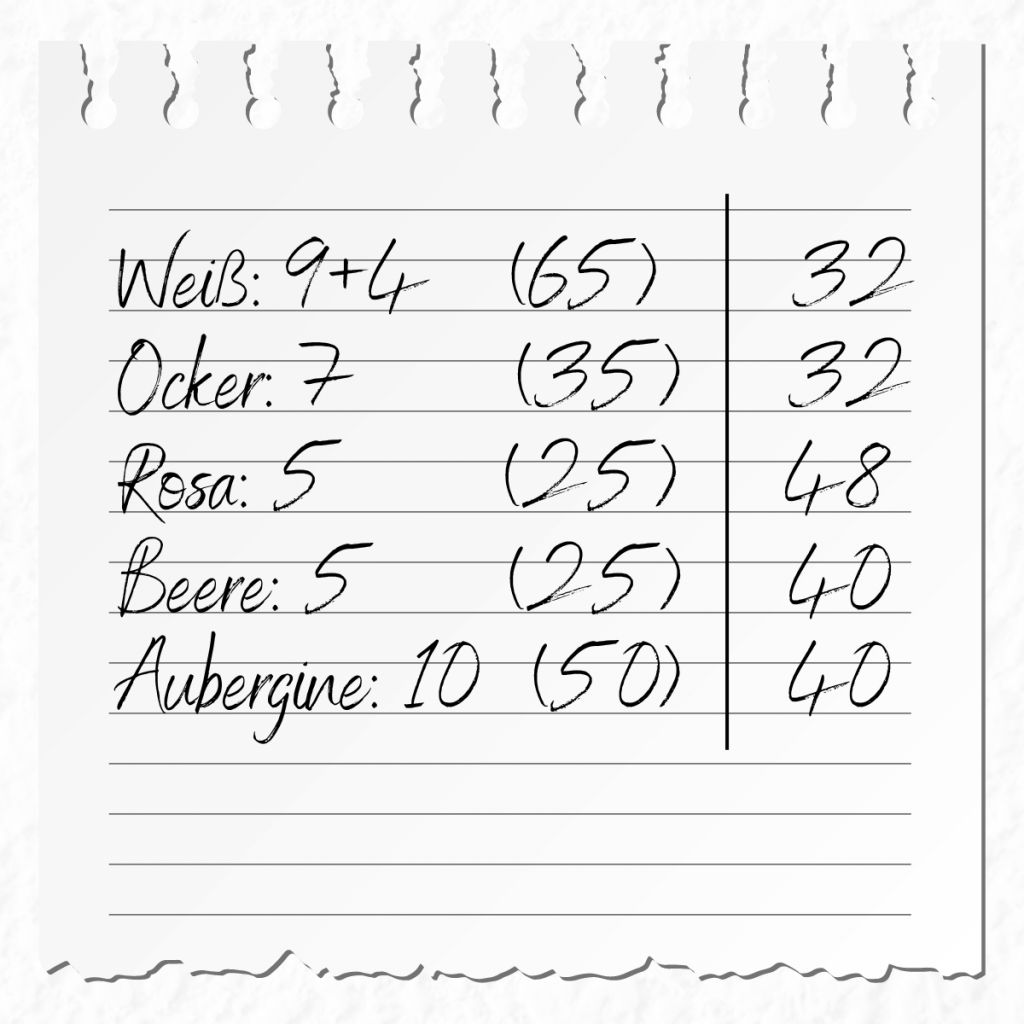 Weiß: 9+4 (65) 32
Ocker: 7 (35) 32
Rosa: 5 (25) 48
Beere: 5 (25) 40
Aubergine: 10 (50) 40